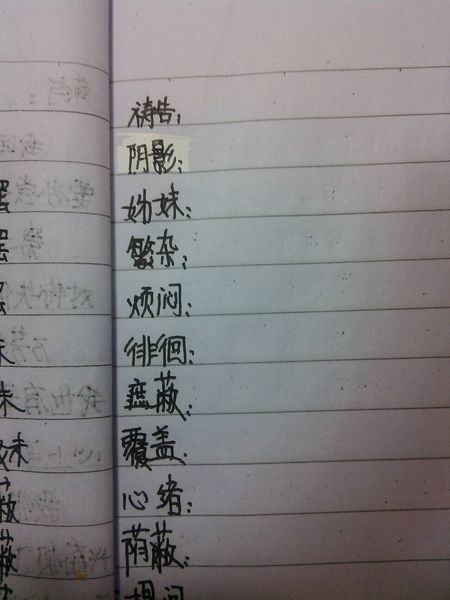 祷告:
阴影:
姊妹:
繁杂:
烦闷:
徘徊:
遮蔽:
覆盖:
心绪:
荫蔽: